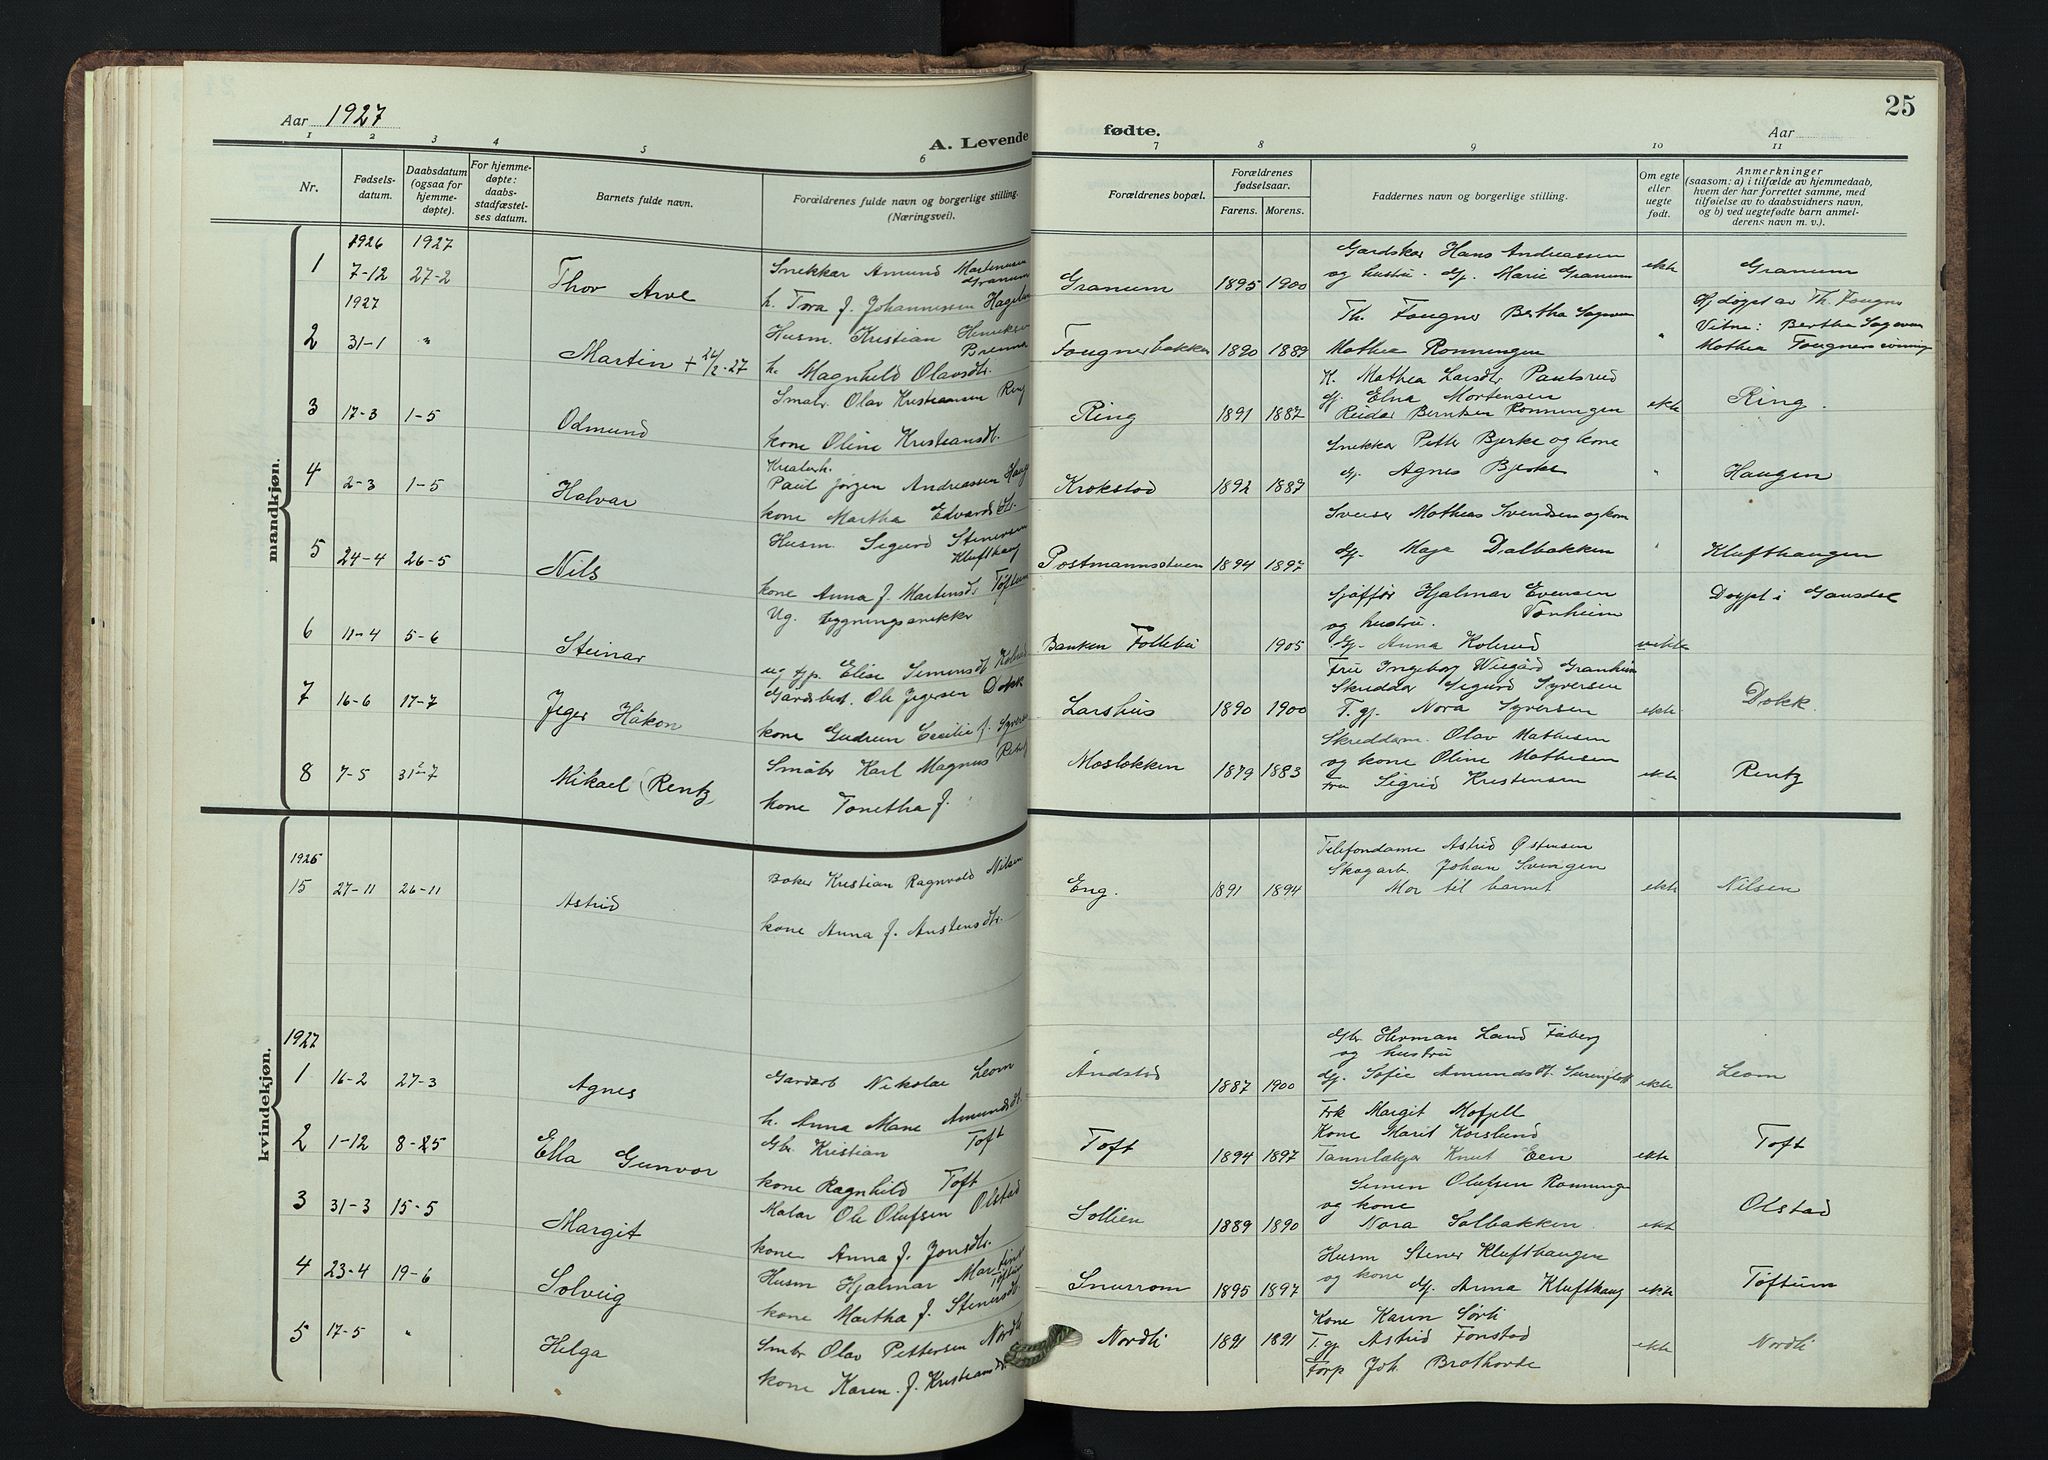 Aar 1927
A. Levende fødte.
Aar
25
1 2 3 4 5 6 7 8 9 10 11
Nr.
Fødsels-datum.
Daabsdatum (ogsaa for hjemme-døpte).
For hjemme-døpte: daabs-stadfæstel-ses datum.
Barnets fulde navn.
Forældrenes fulde navn og borgerlige stilling. (Næringsvei).
Forældrenes bopæl.
Forældrenes fødselsaar.
Farens. Morens.
Faddernes navn og borgerlige stilling.
Om egte eller uegte født.
Anmerkninger
(saasom: a) i tilfælde av hjemmedaab, hvem der har forrettet samme, med tilføielse av to daabsvidners navn, og b) ved uegtefødte barn anmel-derens navn m. v.).
mandkjøn.
1926 1927
1 7-12 27-2 Thov Arve
Snekkar Amund Martenusen Granum
h. Tora f. Johannessen
Granum 1895 1900
Gardskar Hans Andreassen
og hustru. Gj. Marie Granum
ekte Granum
1927
2 31-1 " Martin + 24/2-27
Husm. Kristian
h. Magnhild Olavsdtr.
Fougnerbakken 1890 1889
Th. Fougner Bertha
Mathea Ronningen
" Hj døpt av Th. Fougner
Vitne: Bertha
Mathea
3 17-3 1-5 Odmund
Smabr. Olav Kristiansen Ring
kone Oline Kristiansdt.
Ring 1891 1887
K. Mathea Larsdtr Paulsrud
gj. Elna Mortensen
Reidar Berntsen Ronningen
ekte Ring.
4 2-3 1-5 Halvar
Paul Jørgen Andreassen Haug
kone Martha Edvardsdt.
Krokstad 1892 1887
Snekkar Petter Bjerke og kone
gj. Agnes Bjerke
" Haugen
5 24-4 26-5 Nils
Husm. Sigurd Stenersen Klufthaug
kone Anna f. Martensdt Tøftum
Postmannsstuen 1894 1897
Sveiser Mathias Svendsen og kone
gj. Maja Dalbakken
" Klufthaugen
6 11-4 5-6 Steinar
Ug. bygningssnekker
ug gp. Elise Simensdt
Bakken Follebu 1905
Sjåffør Hjalmar Evensen
og hustru. Vonheim
Gj. Anna Kolsrud
Fru Ingeborg Granheim
uekte Døypt i Gausdal
7 16-6 17-7 Jeger Håkon
Gardbest. Ole Jegersen Dokk
kone Gudrun Cecilie f. Syversen
Larshus 1890 1900
Skreddar Sigurd Syversen
T. gj. Nora Syversen
ekte. Dokk.
8 7-5 31-7 Mikael (Rentz
Småbr Karl Magnus
kone Tonetha f.
Mosløkken 1879 1883
Skreddarm. Olav Mathesen
og kone Oline Mathesen
Fru Sigrid Kristensen
ekte Rentz
kvindekjøn.
1926
15 27-11 26-11 Astrid
Baker Kristian Ragnvald Nilsen
kone Anna f. Austensdtr.
Eng. 1891 1894
Telefondame Astrid Østensen
Skogarb. Johan Svingen
Mor til barnet
ekte Nilsen
1927
1 16-2 27-3 Agnes
Gardarb Nikolai Leom
h. Anna Marie Amundsdt.
Åndstad 1887 1900
Gbr Herman Land Faberg
og hustru
Gj. Sofie Amundsdt.
ekte Leom
2 1-12 8-5 Ella Gunvor
Gbr Kristian Toft
kone Ragnhild Toft
Toft 1894 1897
Frk Margit Mofjell
Kone Marit Korslund
Tannlækjer Knut Een
ekte Toft
3 31-3 15-5 Margit
Malar Ole Olufsen Olstad
kone Anna f. Jonsdtr.
Sollien 1889 1890
Simen Olufsen Ronninge
og kone
Nora Solbakken
ekt Olstad
4 23-4 19-6 Solveig
Husm Hjalmar Martins Tøftum
kone Martha f. Stenersdt
Snurrom 1895 1897
Husm Stener Klufthaugen
og kone gj. Anna Klufthaug
ekte Tøftum
5 17-5 " Helga
Smbr Olav Pettersen Nordli
kone Karen f. Kristiansdtr
Nordli 1891 1891
Kone Karen Sørli
T. gj Astrid Fonstad
Forp Joh. Brothovde
ekte Nordli